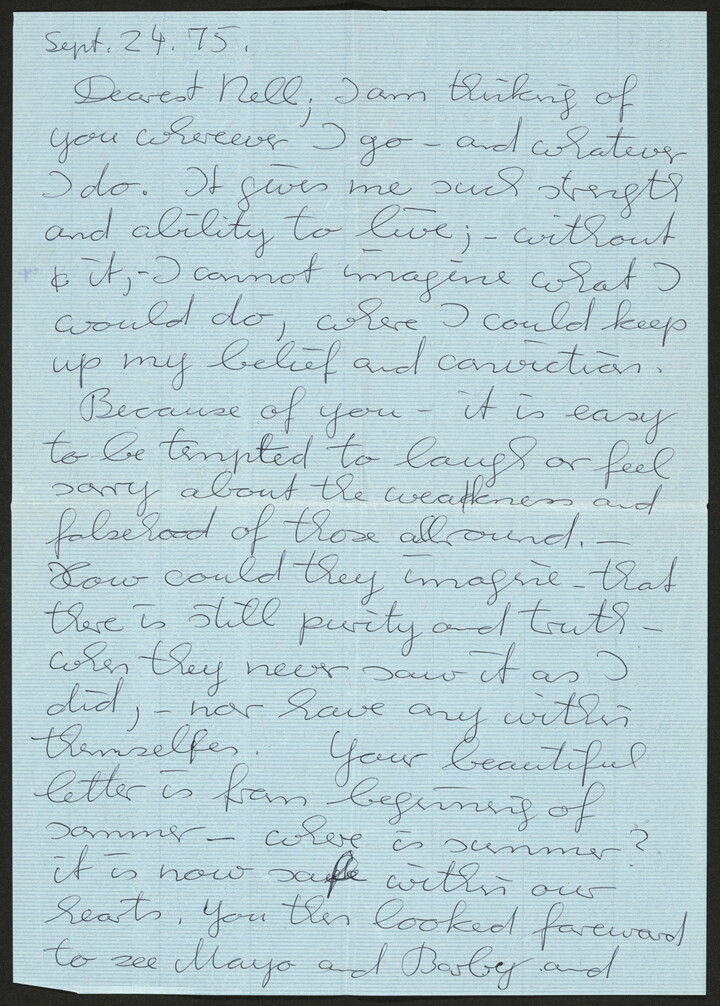 Sept. 24. 75.
Dearest Nell; I am thinking of
you wherever I go – and whatever
I do. It gives me such strength
and ability to live; – without
it, – I cannot imagine what I
would do, where I could keep
up my belief and conviction.
Because of you – it is easy
to be tempted to laugh or feel
sorry about the weakness and
falsehood of those allround. –
How could they imagine – that
there is still purity and truth –
when they never saw it as I
did, – nor have any within
themselfes. Your beautiful
letter is from beginning of
sommer – where is summer?
it is now safe within our
hearts. You then looked foreward
to see Mayo and Barby and